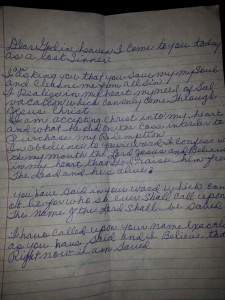 Dear God in heaven I come to you today
as a lost sinner
I am
asking you that you save my my Soul
and cleanse me from all sin
I Realize in my heart my need of Sal
vacation which can only come Through
Jesus Christ
I am accepting Christ into my heart
and what He did on the Cross in order to
Purchase my Redemption
In obedience to your word I confess with
my mouth the Lord Jesus and Believe
in my heart that God Raise Him from
The Dead and his alive
You have Said in your word which can
not lie for who so ever Shall Call upon
The Name of the Lord Shall be Saved
I have Called upon your Name
as you have Said and I Believe that
Right now I am Saved